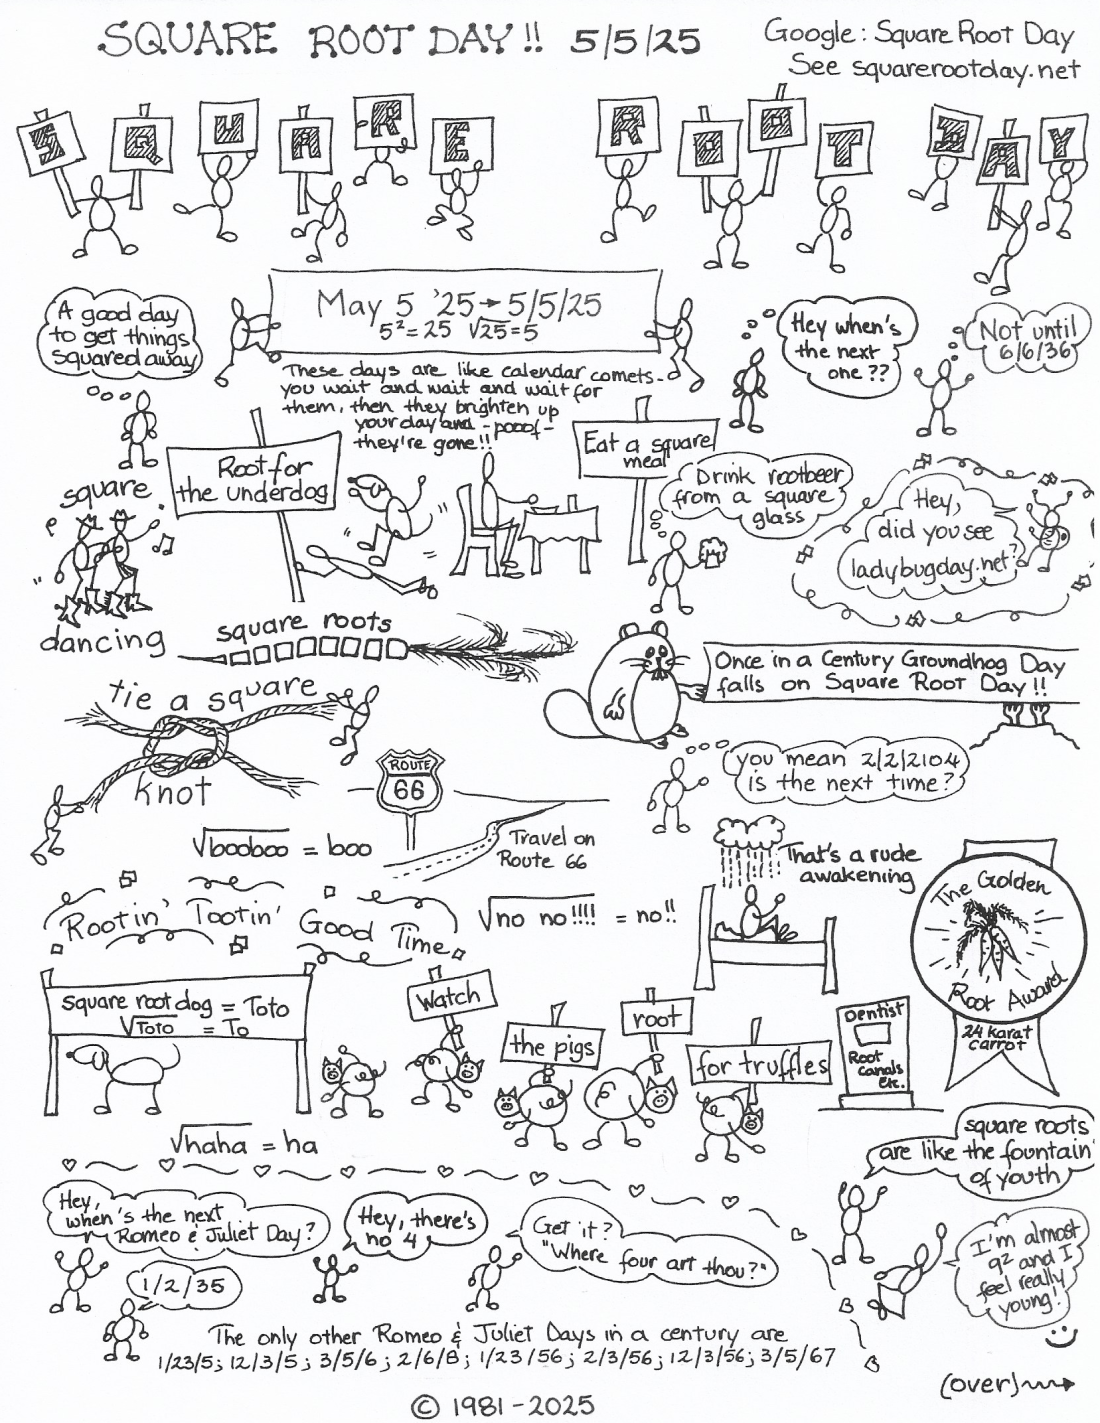 SQUARE ROOT DAY!! 5/5/25
Google: Square Root Day
See squarerootday.net
SQUARE ROOT DAY
A good day
to get things
squared away
May 5 '25 → 5/5/25
5² = 25 √25 = 5
Hey when's
the next
one??
Not until
6/6/36
These days are like calendar comets-
you wait and wait and wait for
them, then they brighten up
your day and -pooof-
they're gone!!
Root for
the underdog
Eat a square
meal
Drink rootbeer
from a square
glass
Hey,
did you see
ladybugday.net?
square
dancing
square roots
Once in a Century Groundhog Day
falls on Square Root Day!!
tie a square
knot
you mean 2/2/2104
is the next time?
ROUTE
66
Travel on
Route 66
√booboo = boo
That's a rude
awakening
Rootin' Tootin'
Good Time
√no no!!!! = no!!
The Golden
Root Award
24 karat
carrot
square root dog = Toto
√Toto = To
Watch
the pigs
root
for truffles
Dentist
Root
canals
etc.
√haha = ha
square roots
are like the fountain
of youth
Hey,
when's the next
Romeo & Juliet Day?
1/2/35
Hey, there's
no 4
Get it?
"Where four art thou?"
I'm almost
9² and I
feel really
young!
The only other Romeo & Juliet Days in a century are
1/23/5; 12/3/5; 3/5/6; 2/6/8; 1/23/56; 2/3/56; 12/3/56; 3/5/67
(over)→
© 1981-2025